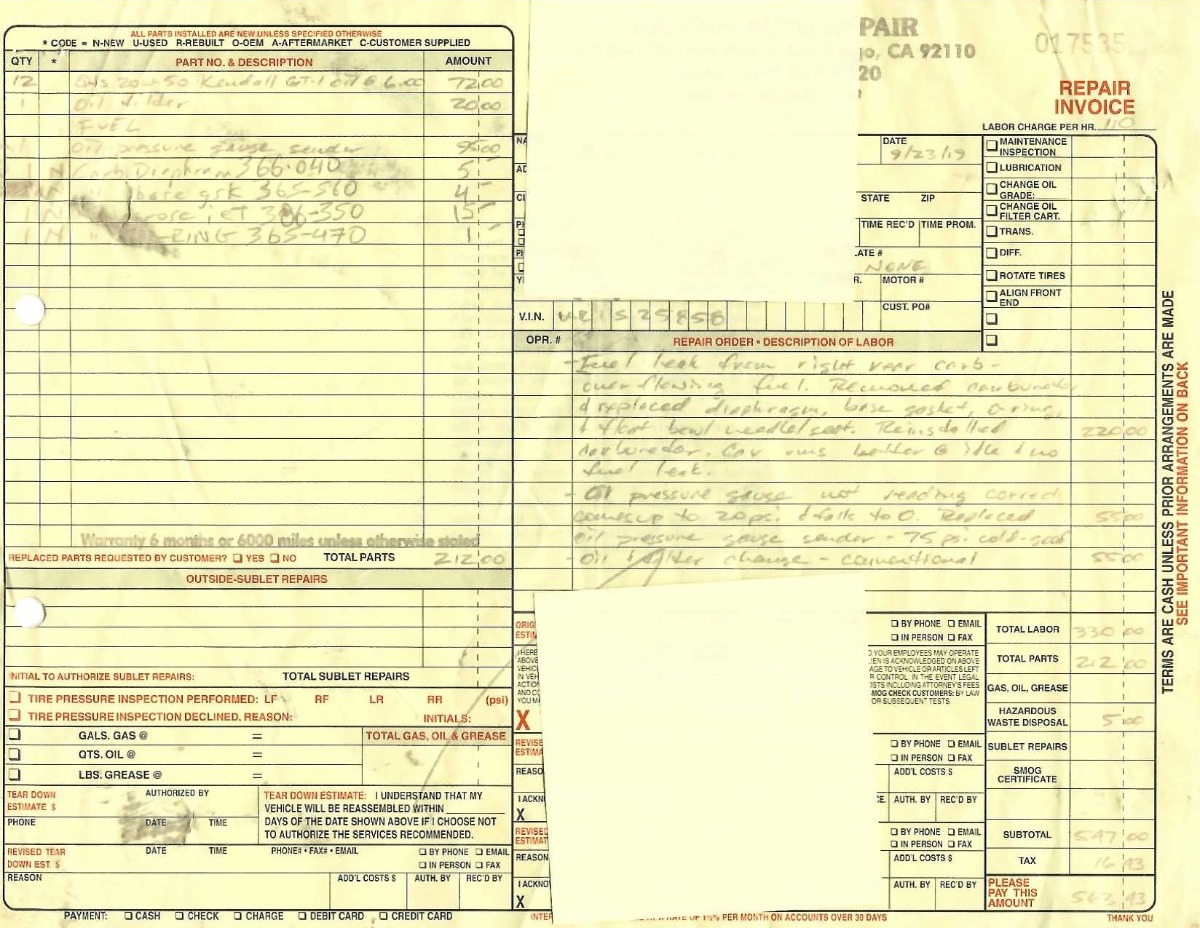 ALL PARTS INSTALLED ARE NEW UNLESS SPECIFIED OTHERWISE
* CODE = N-NEW U-USED R-REBUILT O-OEM A-AFTERMARKET C-CUSTOMER SUPPLIED
QTY * PART NO. & DESCRIPTION AMOUNT
12 Qts 20w-50 Kendall GT-1 oil @ 6.00 72.00
1 Oil filter 20.00
FUEL
1 Oil pressure gauge sender 95.00
1 N Carb Diaphram 366-040 5
N " base gsk 365-560 4
1 N 386-350 15
1 N -RING 365-470 1
Warranty 6 months or 6000 miles unless otherwise stated
REPLACED PARTS REQUESTED BY CUSTOMER? YES NO TOTAL PARTS 212.00
OUTSIDE-SUBLET REPAIRS
INITIAL TO AUTHORIZE SUBLET REPAIRS: TOTAL SUBLET REPAIRS
TIRE PRESSURE INSPECTION PERFORMED: LF RF LR RR (psi)
TIRE PRESSURE INSPECTION DECLINED, REASON: INITIALS:
GALS. GAS @ = TOTAL GAS, OIL & GREASE
QTS. OIL @ =
LBS. GREASE @ =
TEAR DOWN ESTIMATE $ AUTHORIZED BY
PHONE DATE TIME
TEAR DOWN ESTIMATE: I UNDERSTAND THAT MY
VEHICLE WILL BE REASSEMBLED WITHIN
DAYS OF THE DATE SHOWN ABOVE IF I CHOOSE NOT
TO AUTHORIZE THE SERVICES RECOMMENDED.
REVISED TEAR DOWN EST. $ DATE TIME PHONE# • FAX# • EMAIL BY PHONE EMAIL
IN PERSON FAX
REASON ADD'L COSTS $ AUTH. BY REC'D BY
PAYMENT: CASH CHECK CHARGE DEBIT CARD CREDIT CARD
PAIR
go, CA 92110
20
017535
REPAIR
INVOICE
LABOR CHARGE PER HR. 110
DATE
9/23/19
STATE ZIP
TIME REC'D TIME PROM.
LATE #
NONE
MOTOR #
CUST. PO#
MAINTENANCE INSPECTION
LUBRICATION
CHANGE OIL GRADE:
CHANGE OIL FILTER CART.
TRANS.
DIFF.
ROTATE TIRES
ALIGN FRONT END
V.I.N.
OPR. # REPAIR ORDER • DESCRIPTION OF LABOR
- Fuel leak from right rear carb -
overflowing fuel. Removed carburetor
& replaced diaphragm, base gasket, o-ring,
& float bowl needle/seat. Reinstalled 220.00
carburetor. Car runs better @ idle & no
fuel leak.
- Oil pressure gauge not reading correct
comes up to 20psi & falls to 0. Replaced 55.00
oil pressure gauge sender - 75 psi cold-good
- Oil & filter change - conventional 55.00
BY PHONE EMAIL
IN PERSON FAX
D YOUR EMPLOYEES MAY OPERATE
IEN IS ACKNOWLEDGED ON ABOVE
AGE TO VEHICLE OR ARTICLES LEFT
R CONTROL. IN THE EVENT LEGAL
STS INCLUDING ATTORNEY'S FEES
MOG CHECK CUSTOMERS: BY LAW
OR SUBSEQUENT TESTS.
X
BY PHONE EMAIL
IN PERSON FAX
ADD'L COSTS $
AUTH. BY REC'D BY
X
BY PHONE EMAIL
IN PERSON FAX
ADD'L COSTS $
AUTH. BY REC'D BY
X
TOTAL LABOR 330.00
TOTAL PARTS 212.00
GAS, OIL, GREASE
HAZARDOUS WASTE DISPOSAL 5.00
SUBLET REPAIRS
SMOG CERTIFICATE
SUBTOTAL 547.00
TAX 16.43
PLEASE PAY THIS AMOUNT 563.43
RATE OF 1½% PER MONTH ON ACCOUNTS OVER 30 DAYS THANK YOU
TERMS ARE CASH UNLESS PRIOR ARRANGEMENTS ARE MADE
SEE IMPORTANT INFORMATION ON BACK